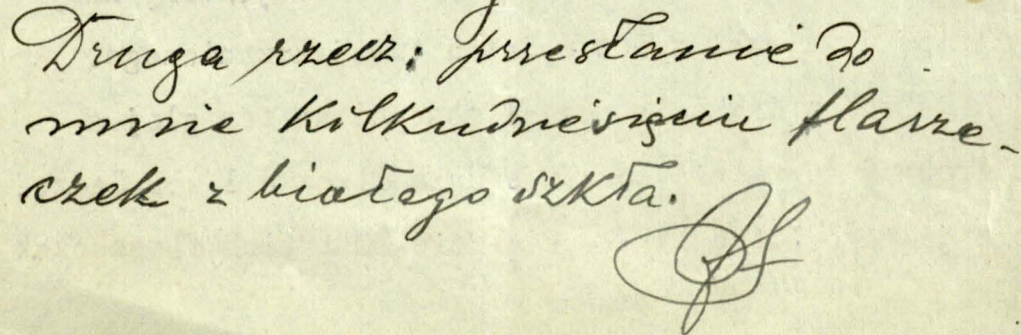 Druga rzecz: przesłanie do
mnie kilkudziesięciu flasze-
czek z białego szkła.